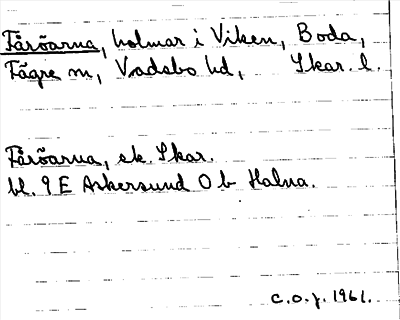 Fåröarna, holmar i Viken, Boda,
Fägre sn, Vadsbo hd, Skar. l.
Fåröarna, ek. Skar.
bl. 9 E Askersund O b Halna.
C.O.J. 1961.